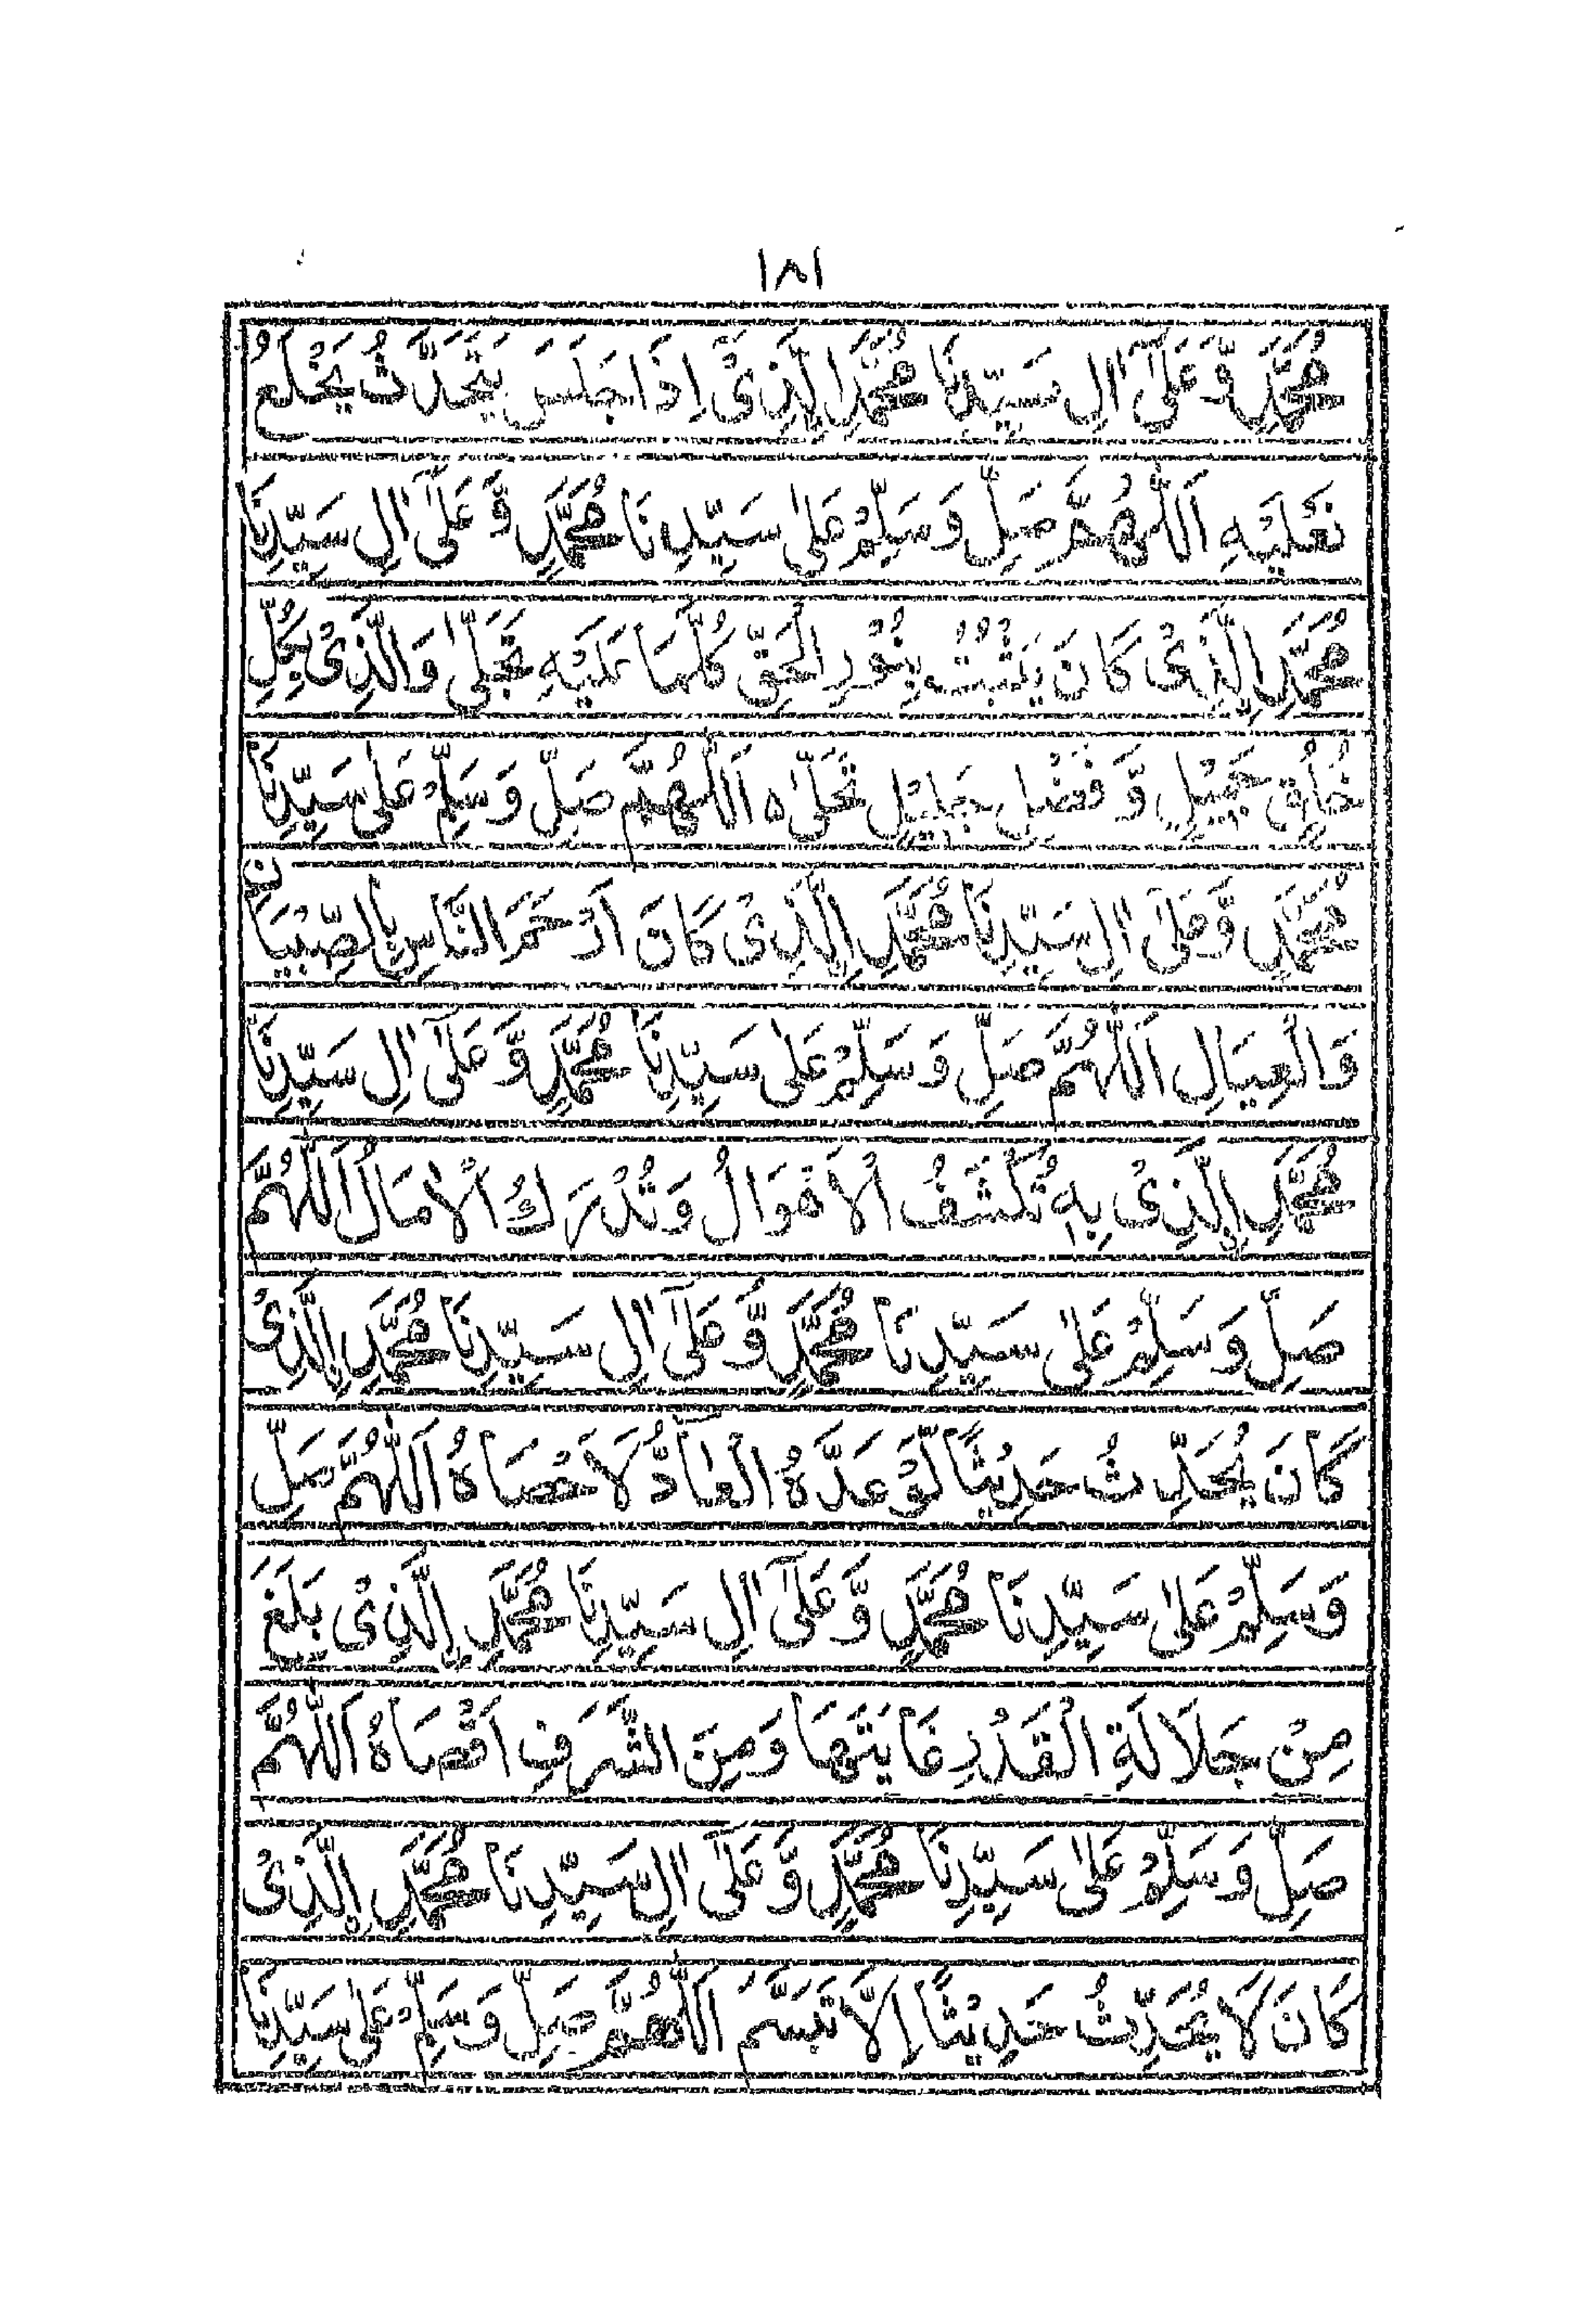 ١٨١
مُحَمَّدٍ وَّعَلٰٓى اٰلِ سَيِّدِنَا مُحَمَّدِ اِلَّذِىْ اِذَا جَلَسَ يَتَحَدَّثُ يَخْلَعُ
نَعْلَيْهِ اَللّٰهُمَّ صَلِّ وَسَلِّمْ عَلٰى سَيِّدِنَا مُحَمَّدٍ وَّعَلٰٓى اٰلِ سَيِّدِنَا
مُحَمَّدِ اِلَّذِىْ كَانَ يَثْبُتُ بِنُوْرِ الْحَقِّ كُلَّمَا عَلَيْهِ تَجَلّٰى وَالَّذِىْ بِكُلِّ
خُلُقٍ جَمِيْلٍ وَّفَضْلٍ جَلِيْلٍ تَحَلّٰى ه اَللّٰهُمَّ صَلِّ وَسَلِّمْ عَلٰى سَيِّدِنَا
مُحَمَّدٍ وَّعَلٰٓى اٰلِ سَيِّدِنَا مُحَمَّدِ اِلَّذِىْ كَانَ اَرْحَمَ النَّاسِ بِالصِّبْيَانِ
وَالْعِيَالِ اَللّٰهُمَّ صَلِّ وَسَلِّمْ عَلٰى سَيِّدِنَا مُحَمَّدٍ وَّعَلٰٓى اٰلِ سَيِّدِنَا
مُحَمَّدِ اِلَّذِىْ بِهٖ تُكْشَفُ الْاَهْوَالُ وَتُدْرَكُ الْاٰمَالُ اَللّٰهُمَّ
صَلِّ وَسَلِّمْ عَلٰى سَيِّدِنَا مُحَمَّدٍ وَّعَلٰٓى اٰلِ سَيِّدِنَا مُحَمَّدِ اِلَّذِىْ
كَانَ يُحَدِّثُ حَدِيْثًا لَّوْ عَدَّهُ الْعَآدُّ لَاَحْصَاهُ اَللّٰهُمَّ صَلِّ
وَسَلِّمْ عَلٰى سَيِّدِنَا مُحَمَّدٍ وَّعَلٰٓى اٰلِ سَيِّدِنَا مُحَمَّدِ اِلَّذِىْ بَلَغَ
مِنْ جَلَالَةِ الْقَدْرِ غَايَتَهَا وَمِنَ الشَّرَفِ اَقْصَاهُ اَللّٰهُمَّ
صَلِّ وَسَلِّمْ عَلٰى سَيِّدِنَا مُحَمَّدٍ وَّعَلٰٓى اٰلِ سَيِّدِنَا مُحَمَّدِ اِلَّذِىْ
كَانَ لَا يُحَدِّثُ حَدِيْثًا اِلَّا تَبَسَّمَ اَللّٰهُمَّ صَلِّ وَسَلِّمْ عَلٰى سَيِّدِنَا